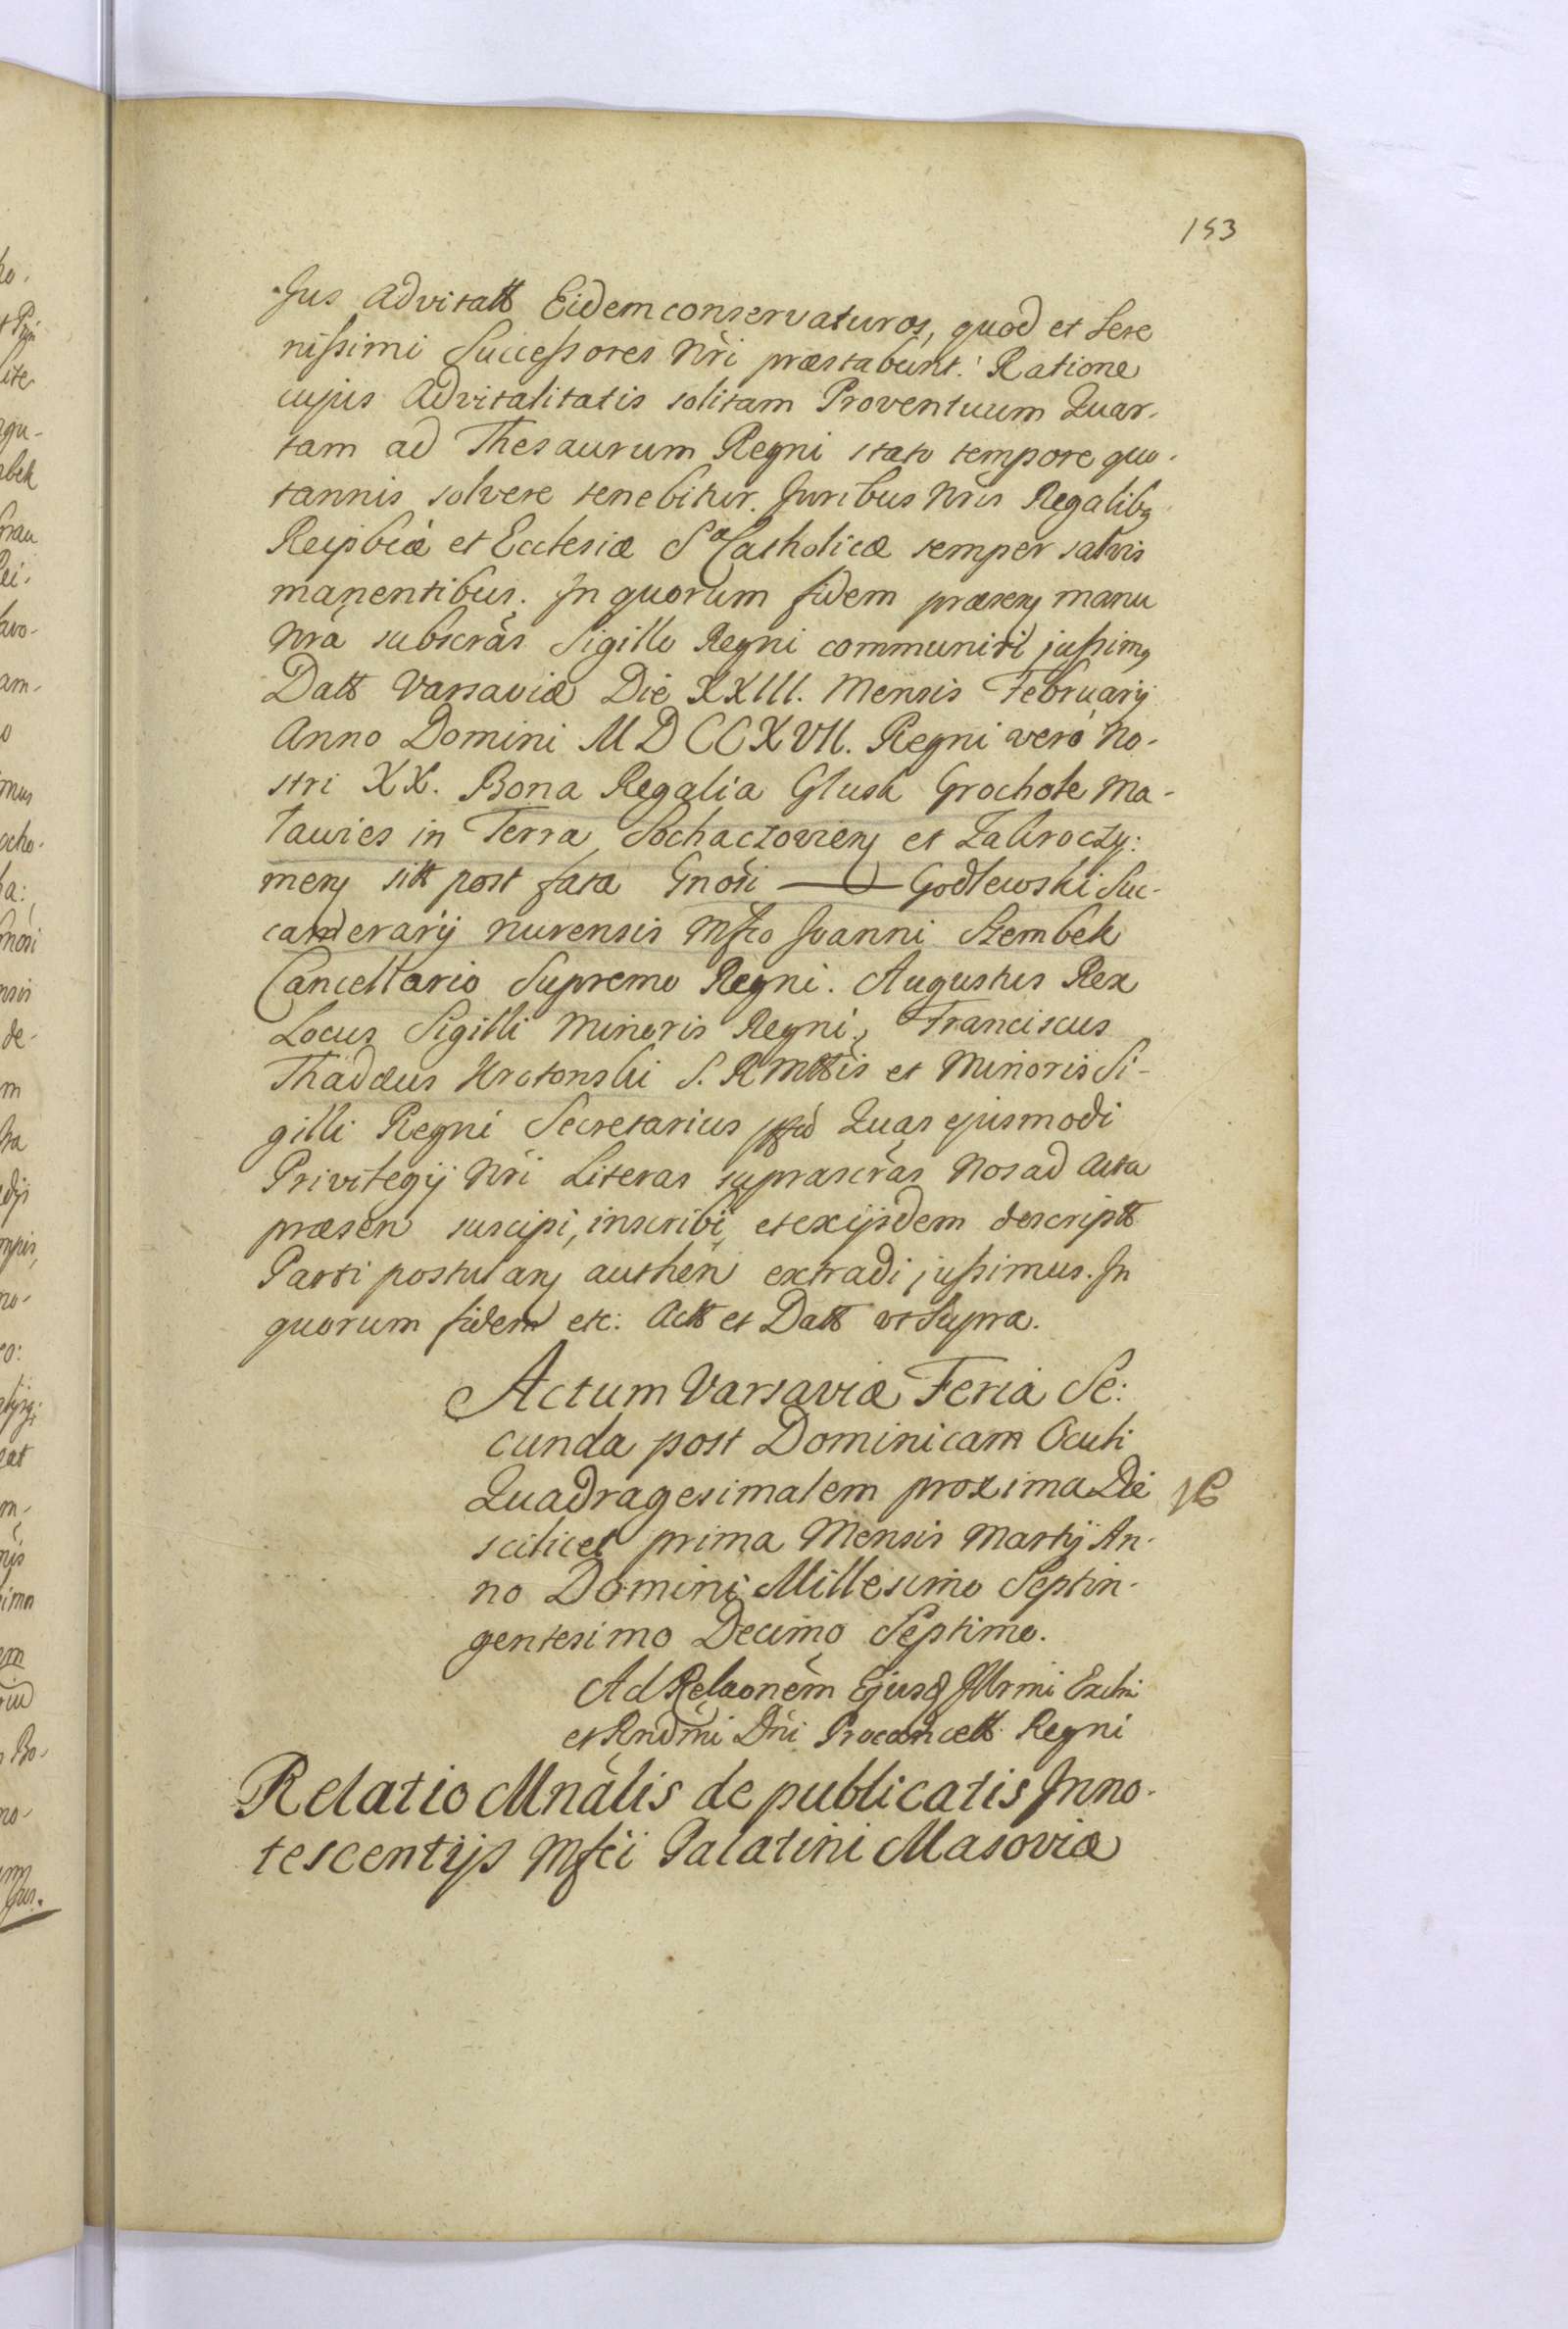 153
Jus Advitalt Eidem conservaturos, quod et Sere
nissimi Successores Nri præstabunt. Ratione
cujus Advitalitatis solitam Proventuum Quar-
tam ad Thesaurum Regni stato tempore quo-
tannis solvere tenebitur. Juribus Nris Regalibq
Reipbcæ et Ecclesiæ Sæ Catholicæ semper salvis
manentibus. In quorum fidem præsens manu
Nra subscras Sigillo Regni communiri jussimq
Datt Varsaviæ Die XXIII. Mensis Februarij
Anno Domini MDCCXVII. Regni vero No-
stri XX. Bona Regalia Glusk Grochole Ma-
tawies in Terra Sochaczoviens et Zakroczy:
mens sitt post fata Gnosi — Godlewski Suc-
camerarij Nurensis Mfco Joanni Szembek
Cancellario Supremo Regni. Augustus Rex
Locus Sigilli Minoris Regni, Franciscus
Thaddæus S. R Mttis et Minoris Si-
gilli Regni Secretarius Quas ejusmodi
Privilegij Nri Literas suprascras Nos ad Acta
præsen suscipi, inscribi, et ex ijsdem descriptt
Parti postulans authen extradi jussimus. In
quorum fidem etc: Actt et Datt ut Supra.
Actum Varsaviæ Feria Se:
cunda post Dominicam Oculi
Quadragesimalem proxima Die
scilicet prima Mensis Martij An-
no Domini Millesimo Septin-
gentesimo Decimo Septimo.
Ad Relaonem Ejusd Illrmi Exclmi
et Rndmi Dni Procancell Regni
Relatio Mnalis de publicatis Inno-
tescentijs Mfci Palatini Masoviæ